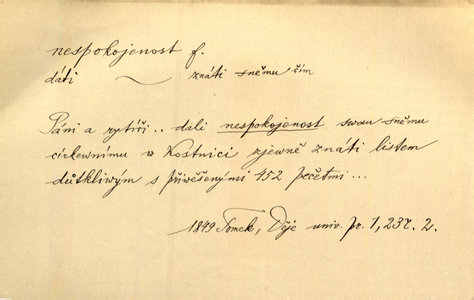 nespokojenost f.
dáti ~ znáti sněmu čím
Páni a rytíři.. dali nespokojenost swou sněmu
církewnímu w Kostnici zjewně znáti listem
důtkliwým s přiwěšenými 452 pečetmi...
1849 Tomek, Děje univ. pr. 1, 237. 2.